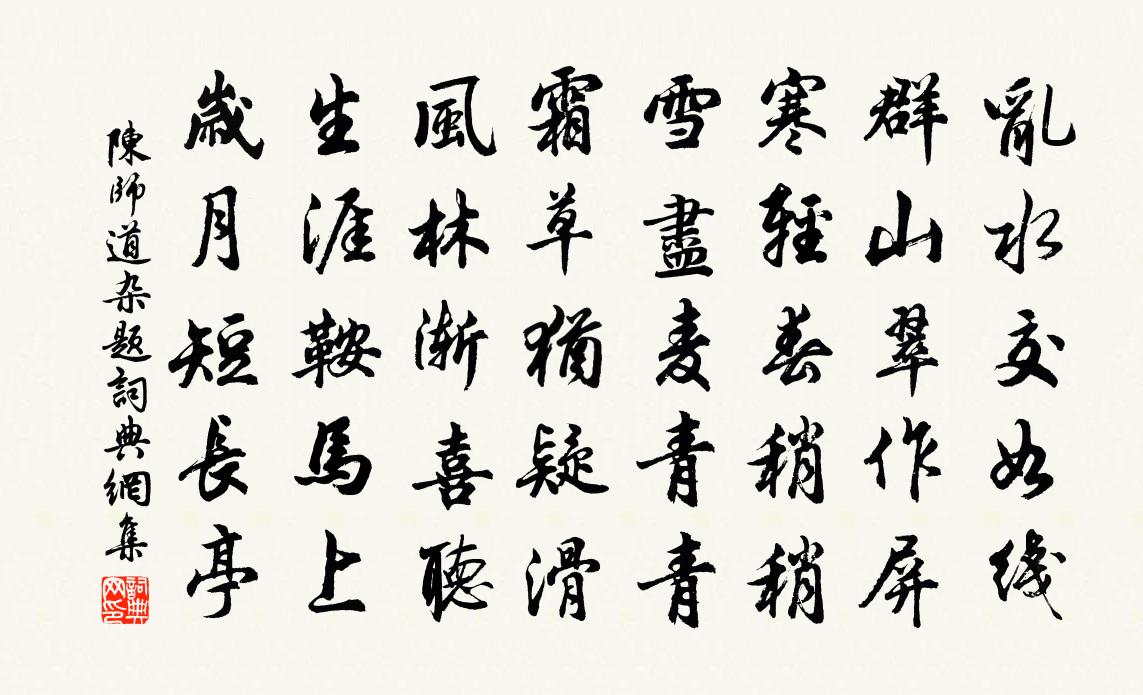 亂水交如綫
群山翠作屏
寒輕春稍稍
雪盡麦青青
霜草猶疑滑
風林漸喜聽
生涯鞍馬上
歲月短長亭
陳師道杂題詞典網集
詞典